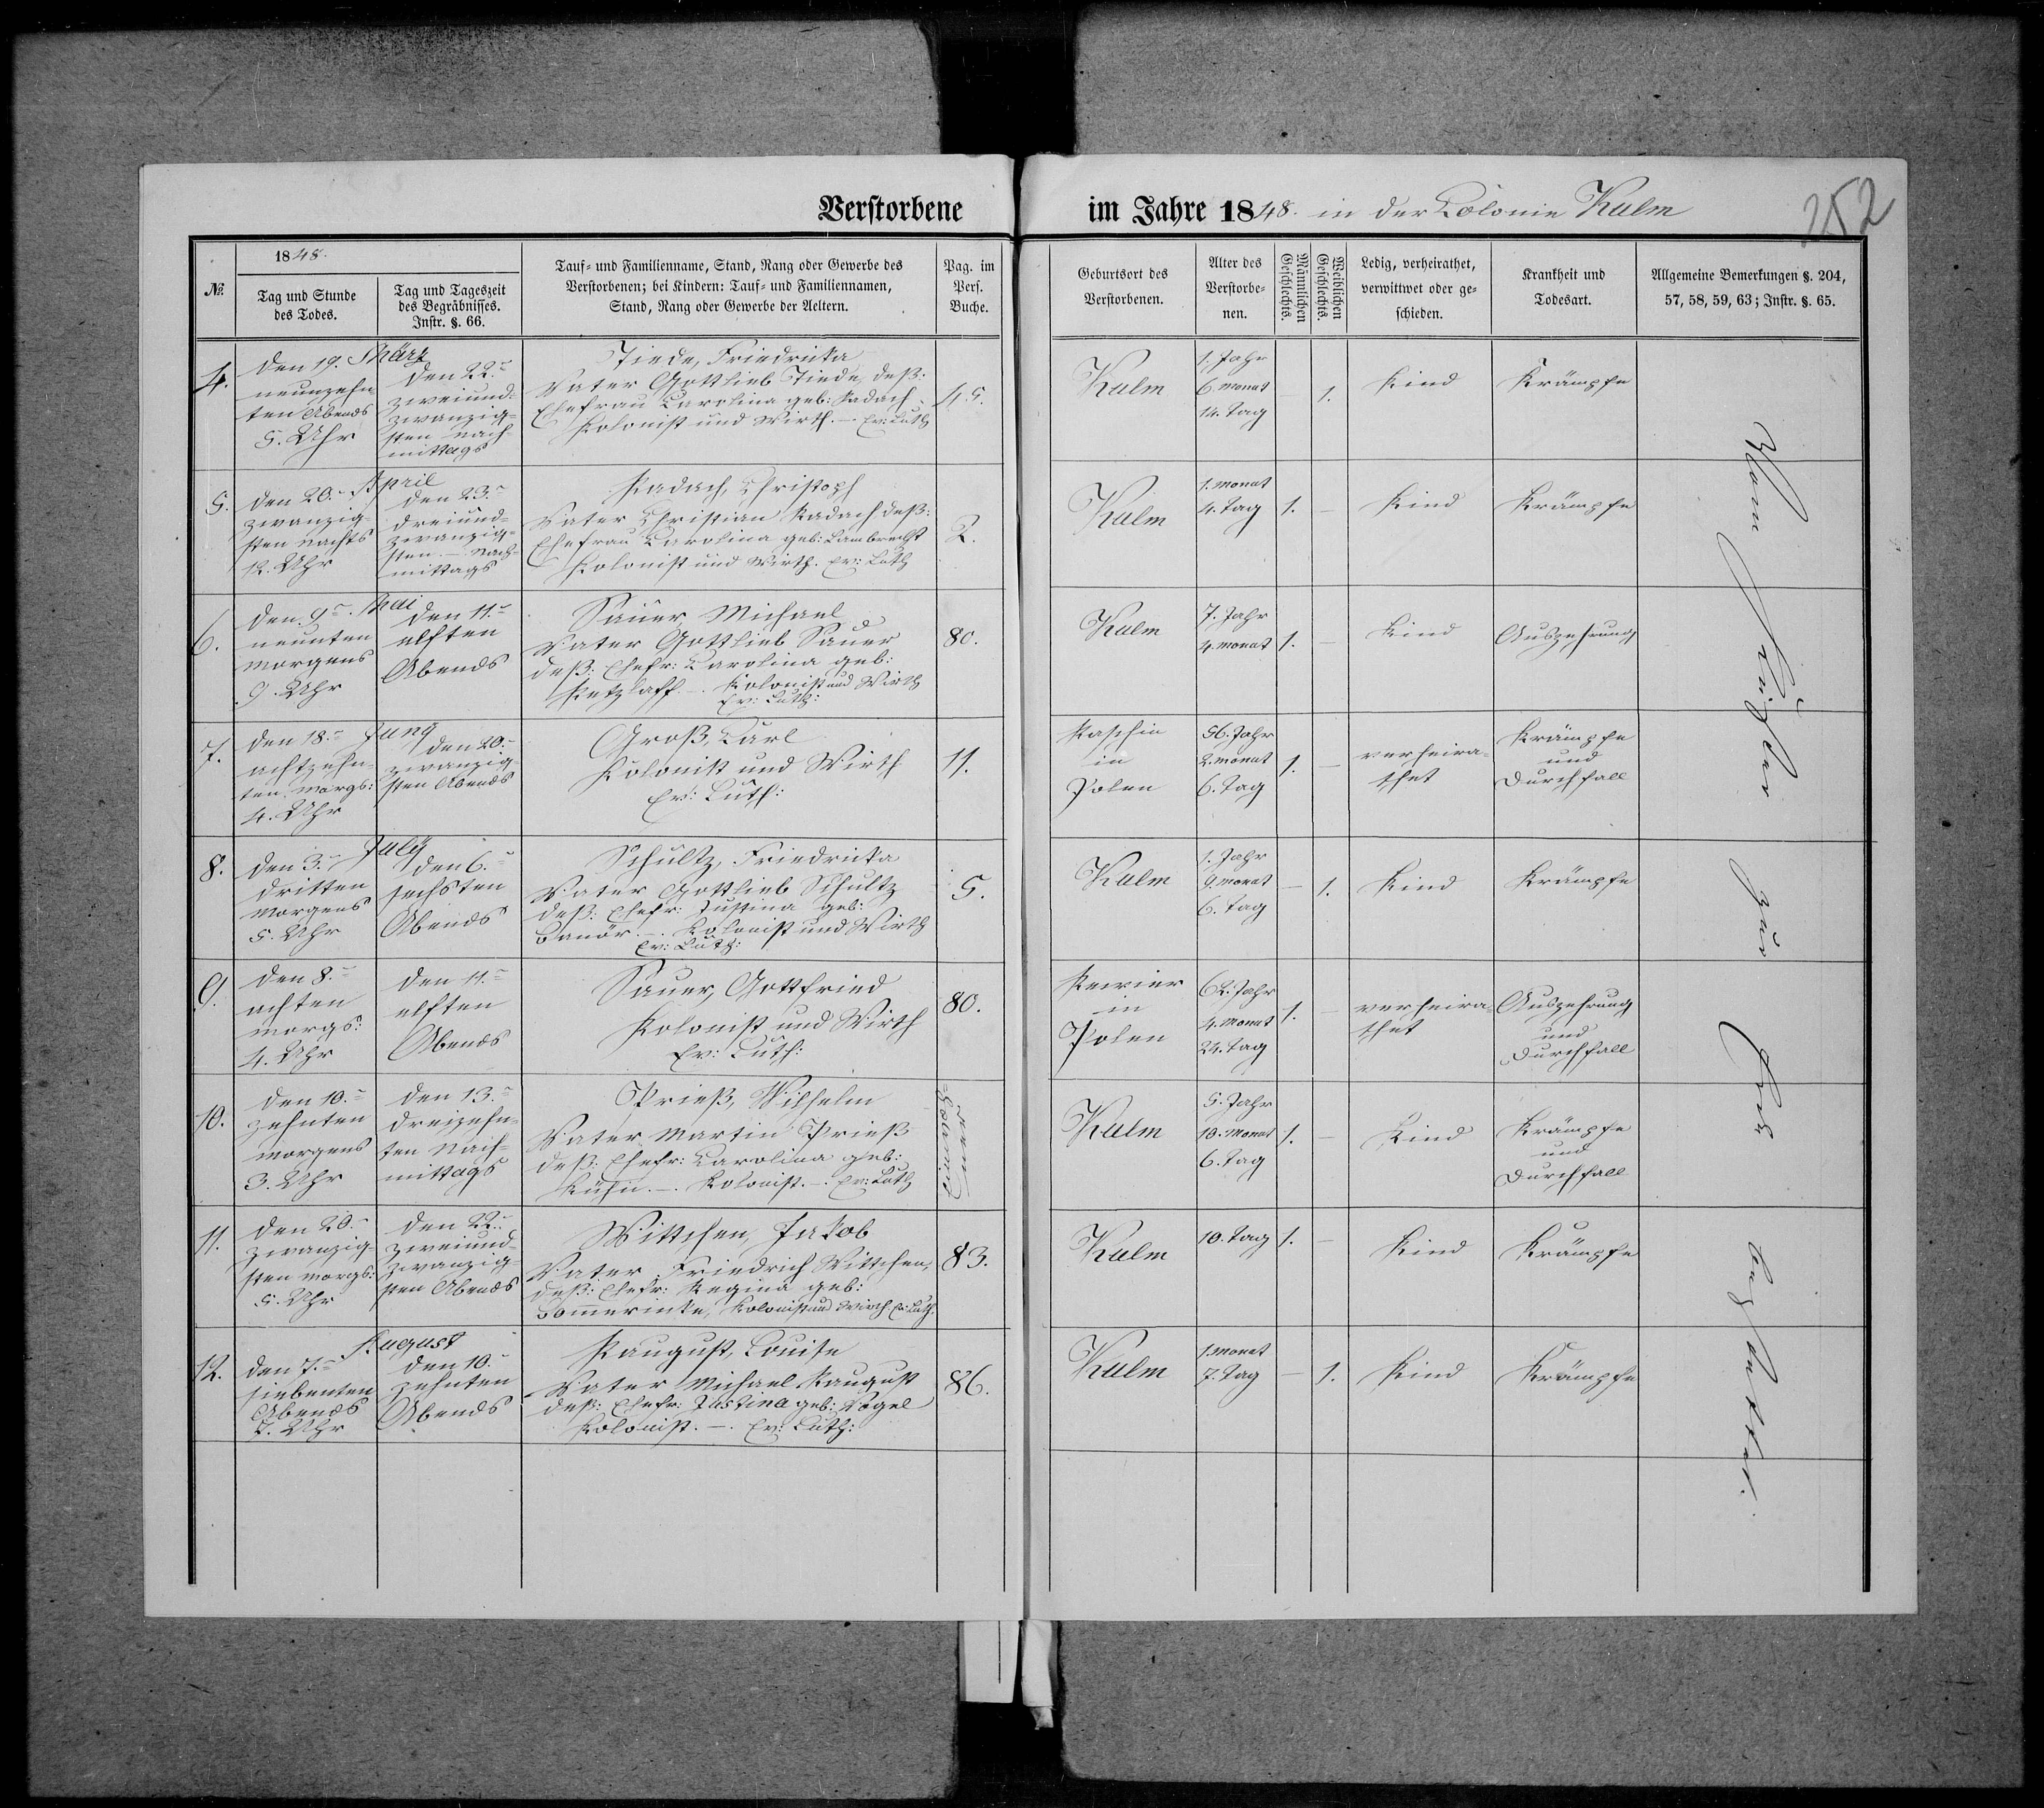 Verstorbene im Jahre 1848. in der Colonie Kulm
252
№.
1848.
Tag und Stunde
des Todes.
Tag und Tageszeit
des Begräbnisses.
Instr. §. 66.
Tauf- und Familienname, Stand, Rang oder Gewerbe des
Verstorbenen; bei Kindern: Tauf- und Familiennamen,
Stand, Rang oder Gewerbe der Aeltern.
Pag. im
Pers.
Buche.
Geburtsort des
Verstorbenen.
Alter des
Verstorbe-
nen.
Männlichen
Geschlechts.
Weiblichen
Geschlechts.
Ledig, verheirathet,
verwittwet oder ge-
schieden.
Krankheit und
Todesart.
Allgemeine Bemerkungen §. 204,
57, 58, 59, 63; Instr. §. 65.
4.
März
den 19.
neunzehn-
ten Abends
5. Uhr
den 22.
zweiund-
zwanzig-
sten Nach-
mittags
Tiede, Friedricka
Vater Gottlieb Tiede, deß:
Ehefrau Carolina geb: Radach
Kolonist und Wirth. — Ev: Luth
45.
Kulm
1. Jahr
6. Monat
14. Tag
—
1.
Kind
Krämpfe
5.
April
den 20.
zwanzig-
sten Nachts
12. Uhr
den 23.
dreiund-
zwanzig-
sten. — Nach-
mittags
Radach, Christoph
Vater Christian Radach deß:
Ehefrau Carolina geb: Lambrecht
Kolonist und Wirth. Ev: Luth
2.
Kulm
1. Monat
4. Tag
1.
—
Kind
Krämpfe
6.
Mai
den 9.
neunten
Morgens
9. Uhr
den 11.
elften
Abends
Sauer Michael
Vater Gottlieb Sauer
deß: Ehefr: Carolina geb:
Retzlaff. —. Kolonist und Wirth
Ev: Luth:
80.
Kulm
7. Jahr
4. Monat
1.
—
Kind
Auszehrung
7.
Juny
den 18.
achtzehn-
ten Morgs:
4. Uhr
den 20.
zwanzig-
sten Abends
Groß, Carl
Kolonist und Wirth
Ev: Luth:
11.
in
Polen
56. Jahr
2. Monat
6. Tag
1.
—
verheira-
thet
Krämpfe
und
Durchfall
8.
July
den 3.
dritten
Morgens
5. Uhr
den 6.
sechsten
Abends
Schultz, Friedricka
Vater Gottlieb Schultz
deß: Ehefr: Justina geb:
—. Kolonist und Wirth
Ev: Luth:
5.
Kulm
1. Jahr
9. Monat
6. Tag
—
1.
Kind
Krämpfe
9.
den 8.
achten
Morgs:
4. Uhr
den 11.
elften
Abends
Sauer, Gottfried
Kolonist und Wirth
Ev: Luth:
80.
in
Polen
62. Jahr
4. Monat
24. Tag
1.
—
verheira-
thet
Auszehrung
und
Durchfall
10.
den 10.
zehnten
Morgens
3. Uhr
den 13.
dreizehn-
ten Nach-
mittags
Prieß, Wilhelm
Vater Martin Prieß
deß: Ehefr: Carolina geb:
Kühn. —. Kolonist. —. Ev: Luth
Kulm
5. Jahr
10. Monat
6. Tag
1.
—
Kind
Krämpfe
und
Durchfall
11.
den 20.
zwanzig-
sten Morgs:
5. Uhr
den 22.
zweiund-
zwanzig-
sten Abends
Wittchen, Jakob
Vater Friedrich Wittchen,
deß: Ehefr: Regina geb:
Kolonist und Wirth. Ev: Luth.
83.
Kulm
10. Tag
1.
—
Kind
Krämpfe
12.
August
den 7.
siebenten
Abends
7. Uhr
den 10.
zehnten
Abends
Raugust, Louise
Vater Michael Raugust
deß: Ehefr: Justina geb: Vogel
Kolonist. —. Ev: Luth:
86.
Kulm
1. Monat
7. Tag
—
1.
Kind
Krämpfe
Vom Küster zur Erde bestattet.